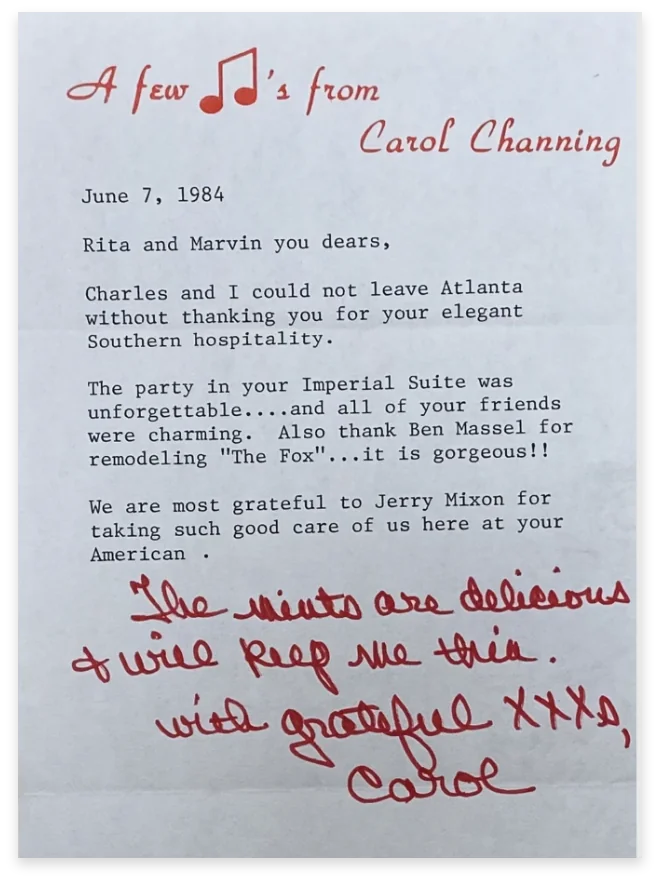 A few ♫'s from
Carol Channing
June 7, 1984
Rita and Marvin you dears,
Charles and I could not leave Atlanta
without thanking you for your elegant
Southern hospitality.
The party in your Imperial Suite was
unforgettable....and all of your friends
were charming.  Also thank Ben Massel for
remodeling "The Fox"...it is gorgeous!!
We are most grateful to Jerry Mixon for
taking such good care of us here at your
American .
The mints are delicious
& will keep me thin.
with grateful XXXs,
Carol